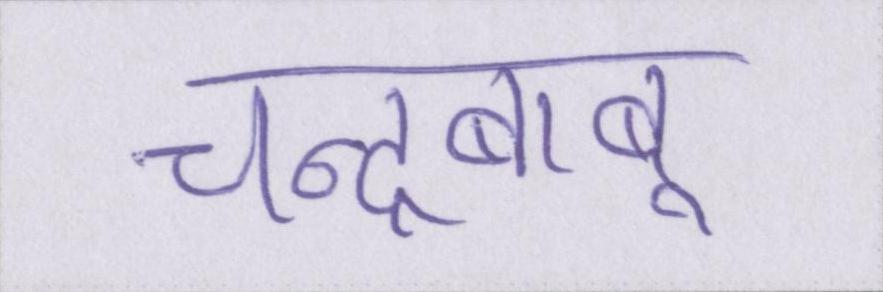 चन्द्रबाबू